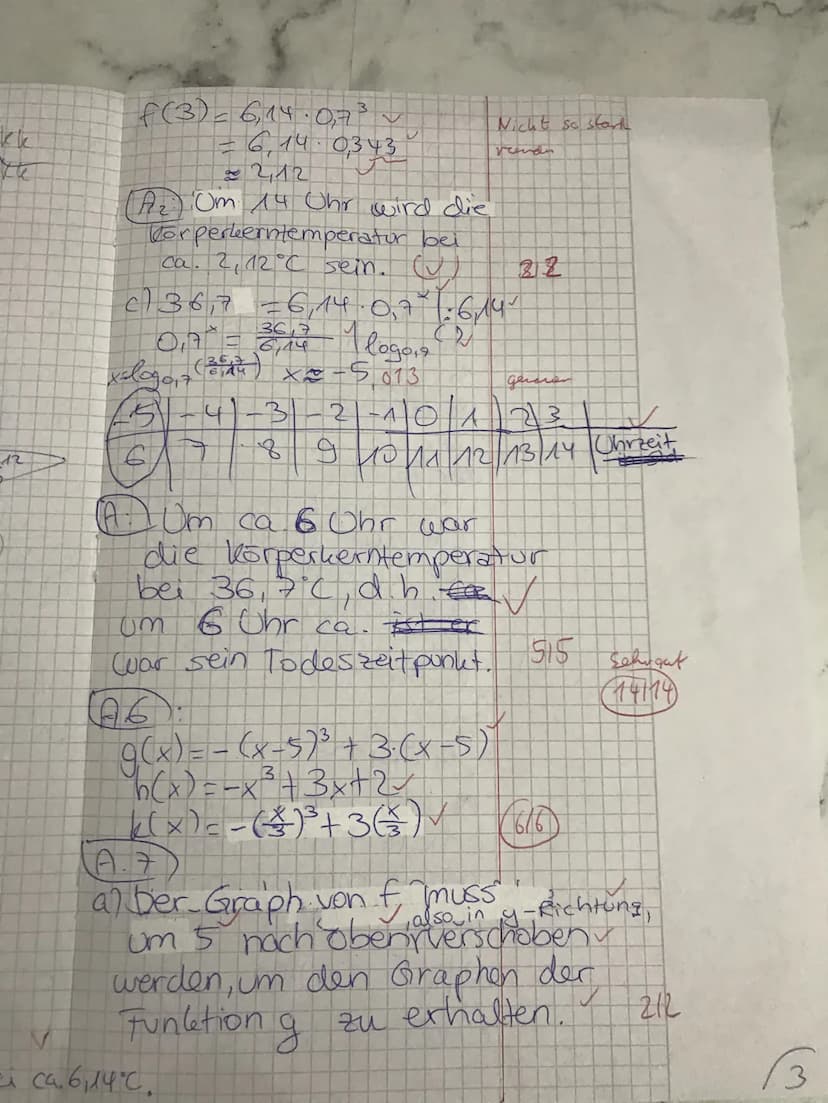 f(3) = 6,14 · 0,7³ ✓
Nicht so stark
runden
= 6,14 · 0,343
≈ 2,12 ✓
A2: Um 14 Uhr wird die
Körperkerntemperatur bei
ca. 2,12°C sein. (✓)
c) 36,7 = 6,14 · 0,7ˣ |: 6,14
0,7ˣ = 36,7/6,14 | log0,7
x=log0,7 (36,7/6,14) x ≈ -5,013
genauer
-5 | -4 | -3 | -2 | -1 | 0 | 1 | 2 | 3 | ✓
6 | 7 | 8 | 9 | 10 | 11 | 12 | 13 | 14 | Uhrzeit
A: Um ca 6 Uhr war
die Körperkerntemperatur
bei 36,7°C, d.h. ✓
um 6 Uhr ca.
war sein Todeszeitpunkt. 5/5
Sehr gut
14/14
A6:
g(x) = -(x-5)³ + 3·(x-5) ✓
h(x) = -x³ + 3x + 2 ✓
k(x) = -(x/3)³ + 3(x/3) ✓ 6/6
A.7
a) Der Graph von f muss
, also in y-Richtung,
um 5 nach oben verschoben ✓
werden, um den Graphen der
Funktion g zu erhalten. ✓ 2/2
ca. 6,14°C.
3